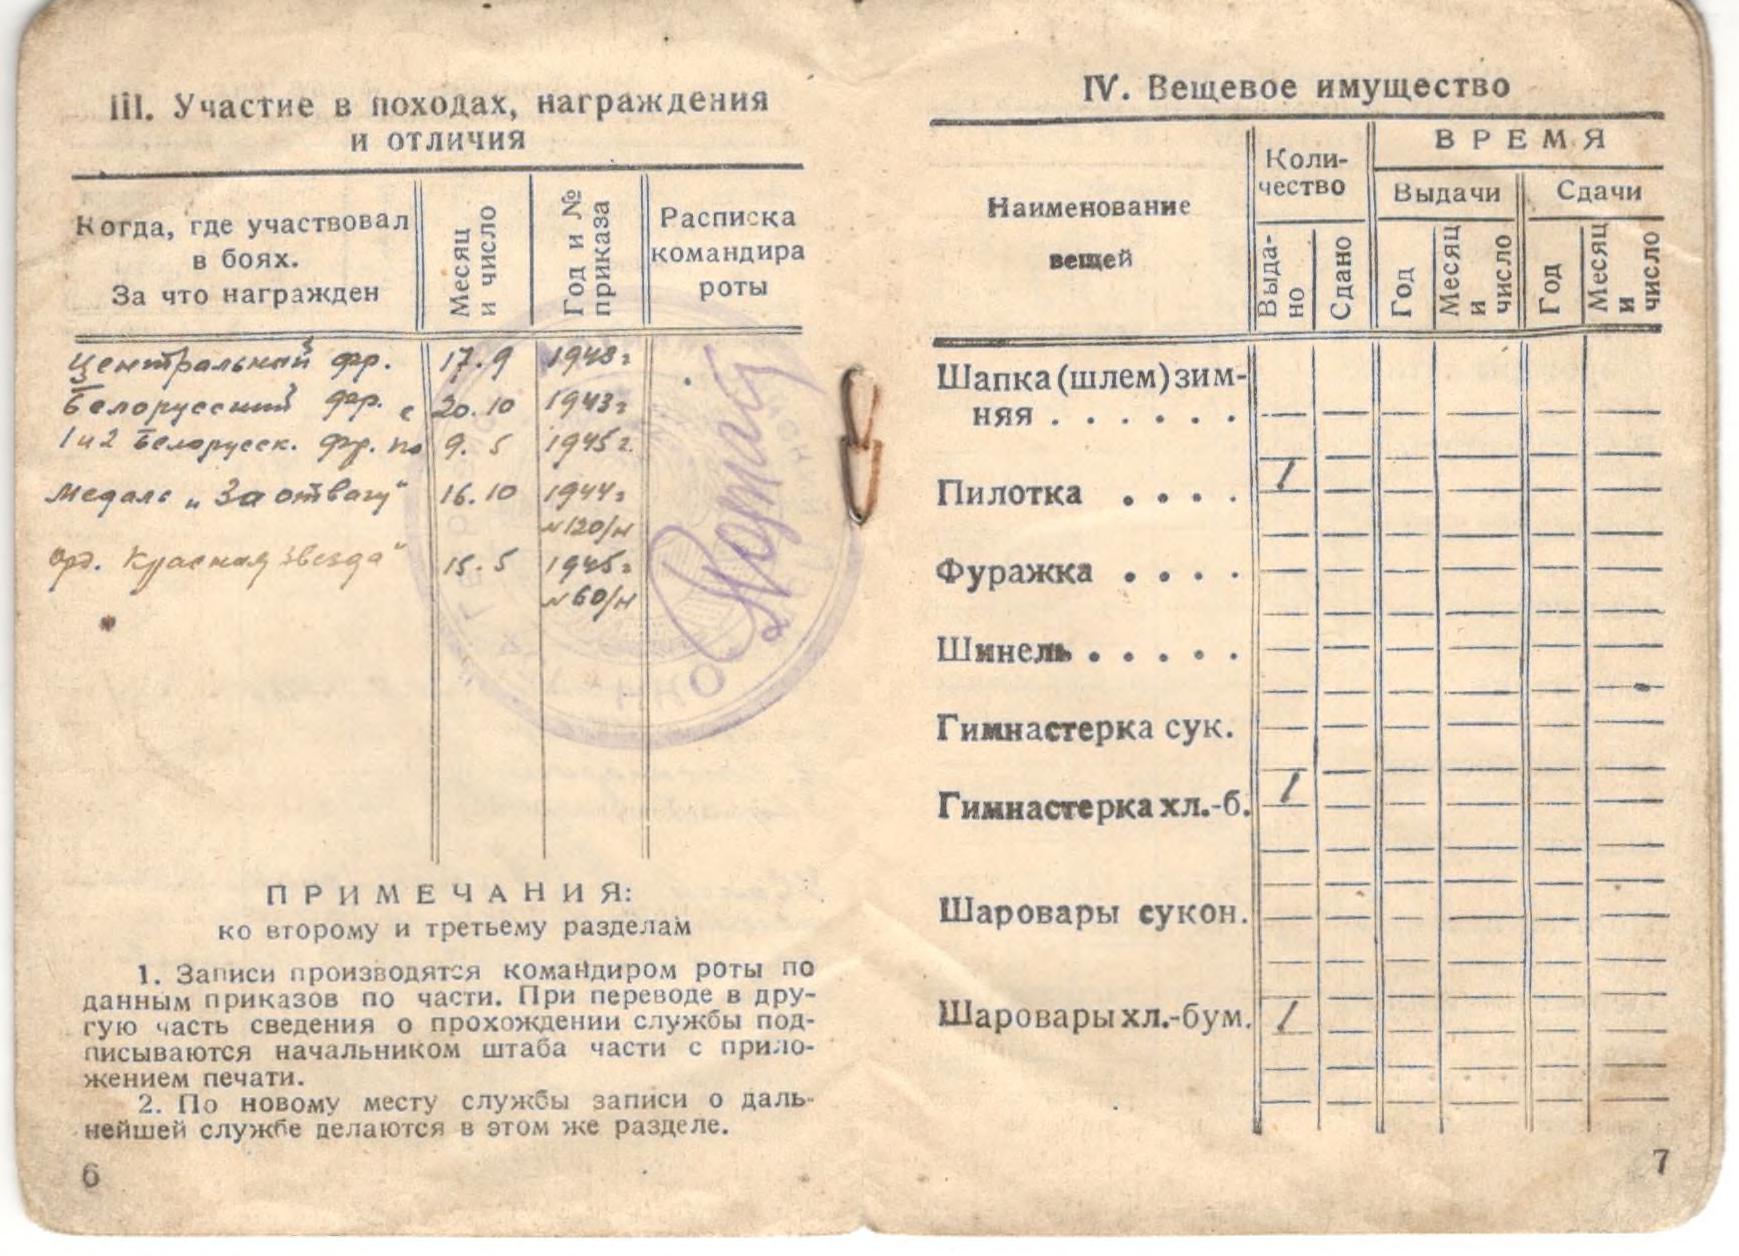 III. Участие в походах, награждения
и отличия
Когда, где участвовал
в боях.
За что награжден
Месяц
и число
Год и №
приказа
Расписка
командира
роты
Центральный фр. 17.9 1943г
Белорусский фр. с 20.10 1943г
1 и 2 Белорусск. фр. по 9.5 1945г.
Медаль „За отвагу" 16.10 1944г
№120/н
орд. Красная звезда" 15.5 1945г
№60/н
ПРИМЕЧАНИЯ:
ко второму и третьему разделам
1. Записи производятся командиром роты по
данным приказов по части. При переводе в дру-
гую часть сведения о прохождении службы под-
писываются начальником штаба части с прило-
жением печати.
2. По новому месту службы записи о даль-
нейшей службе делаются в этом же разделе.
6
IV. Вещевое имущество
Наименование
вещей
Коли-
чество
ВРЕМЯ
Выдачи
Сдачи
Выда-
но
Сдано
Год
Месяц
и
число
Год
Месяц
и
число
Шапка (шлем) зим-
няя . . . . . .
Пилотка . . . . 1
Фуражка . . . .
Шинель . . . . .
Гимнастерка сук.
Гимнастерка хл.-б. 1
Шаровары сукон.
Шаровары хл.-бум. 1
7